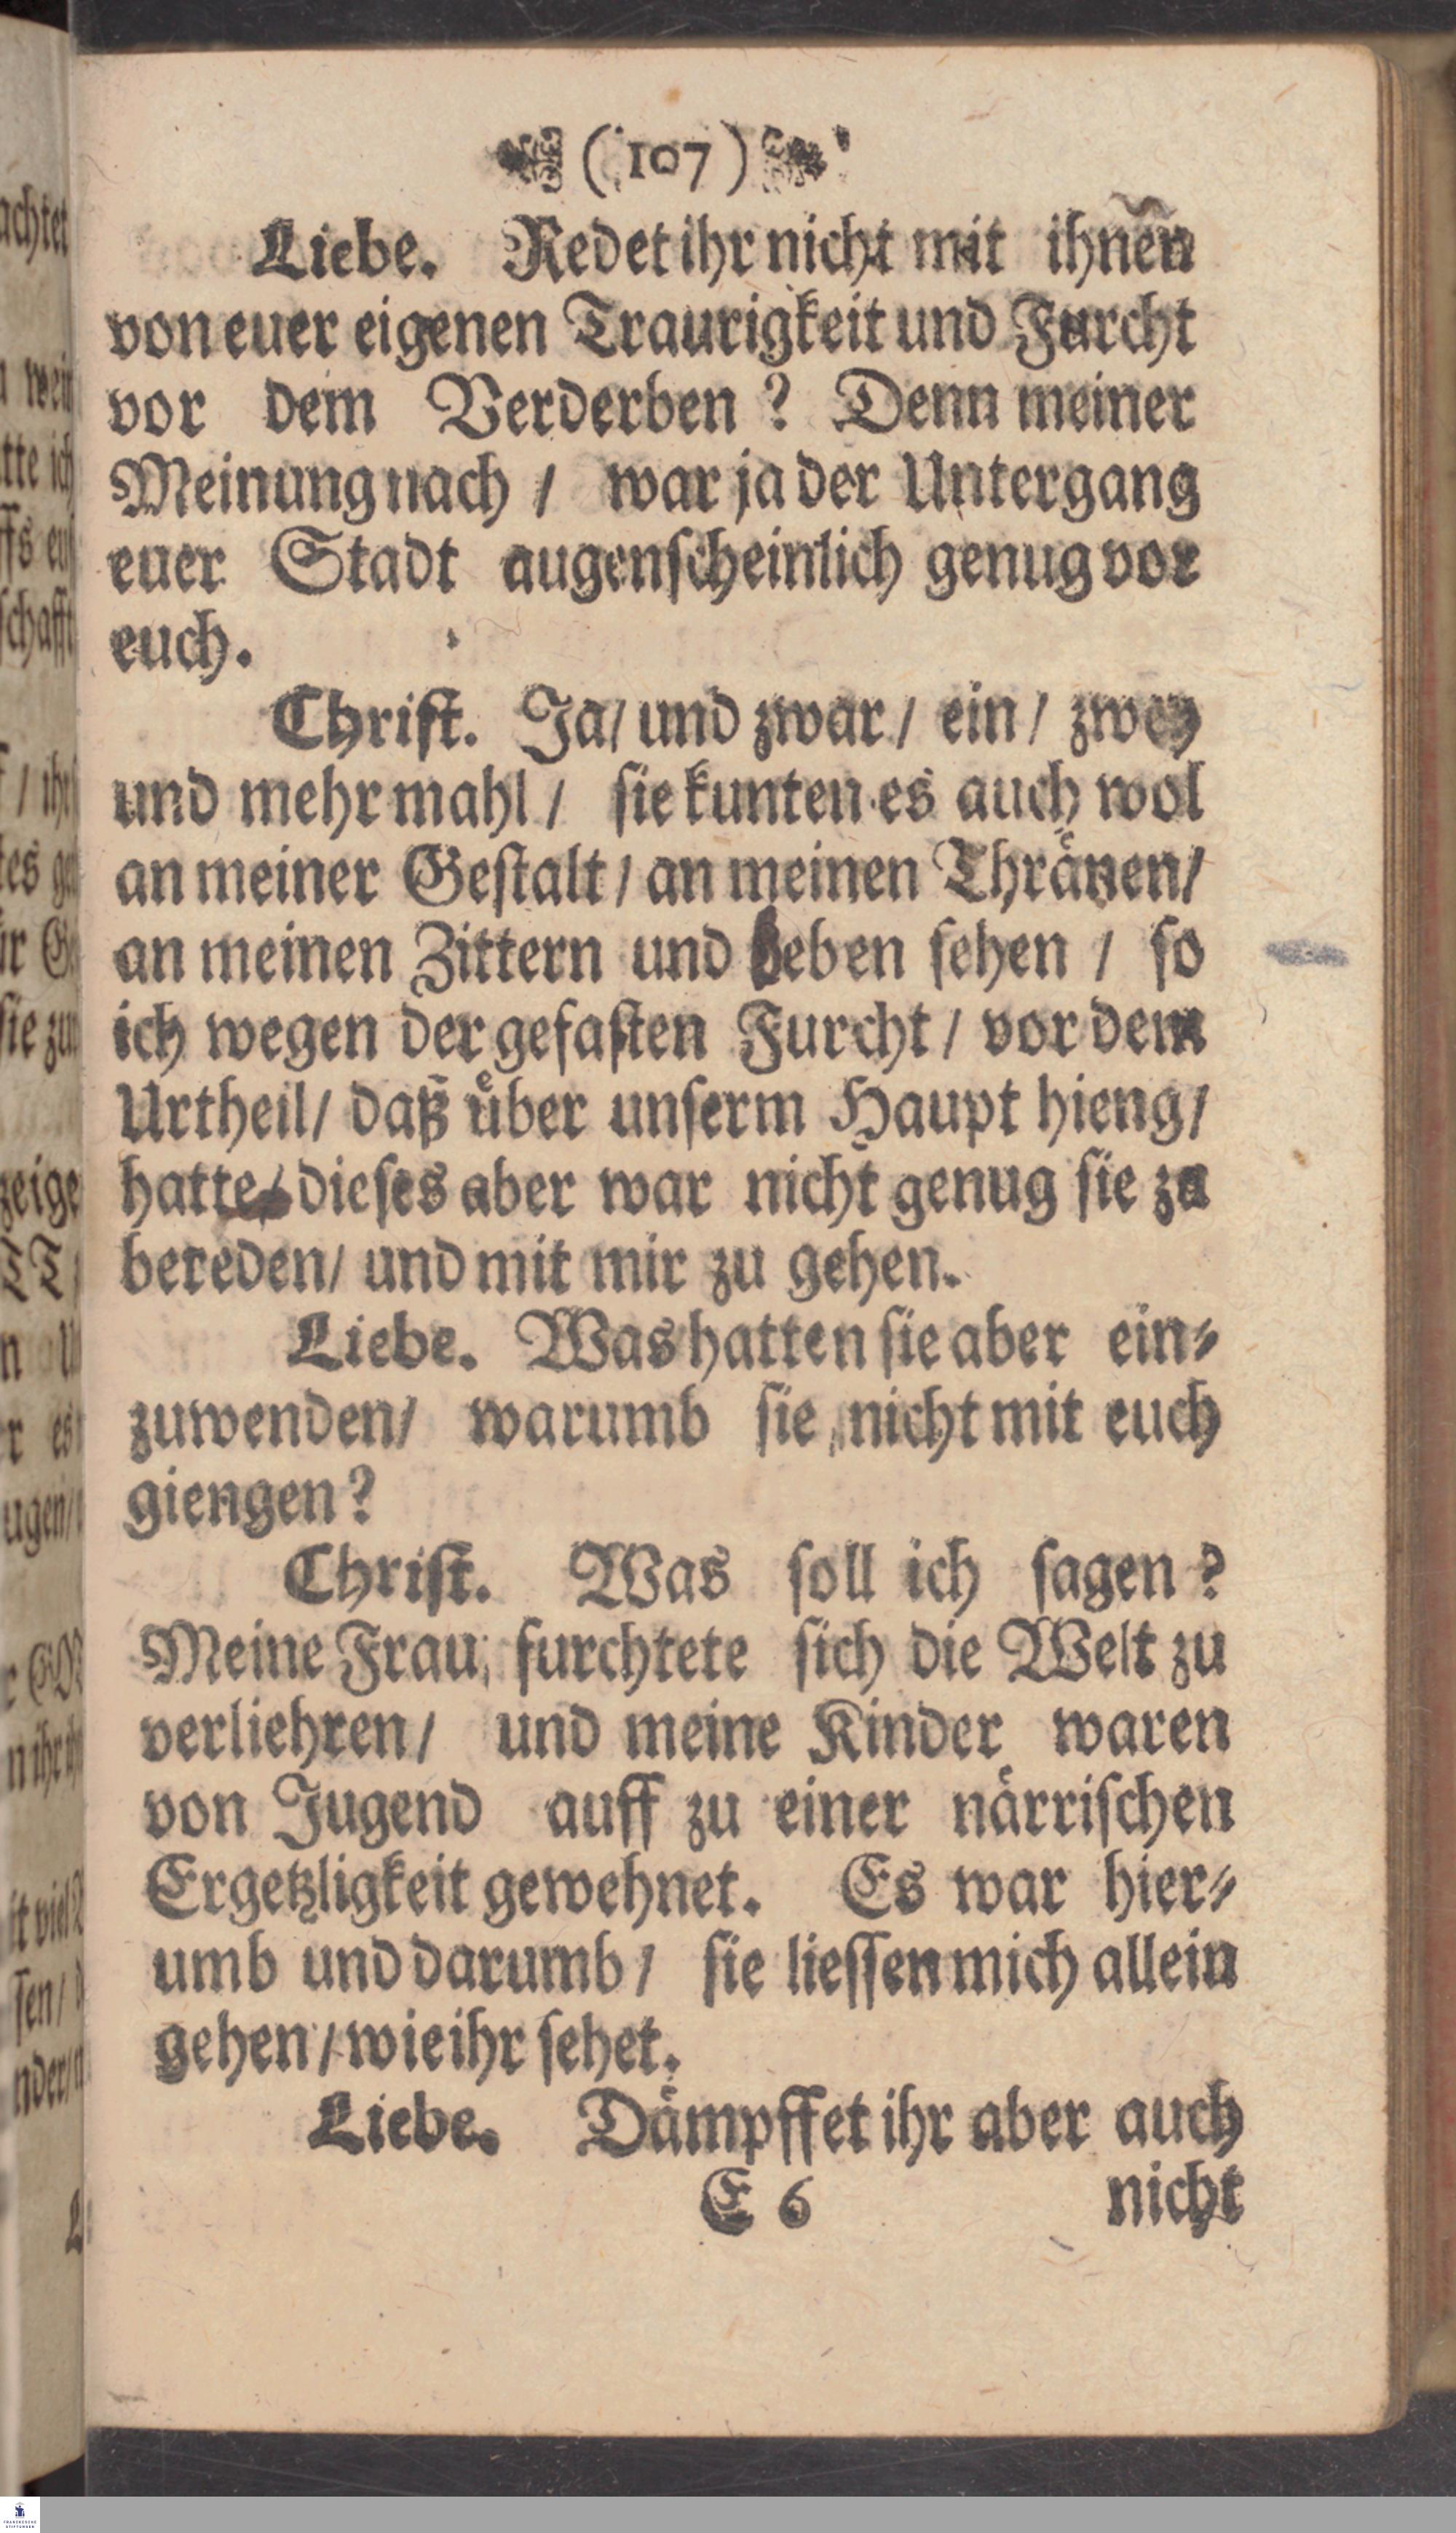 (107)
Liebe. Redet ihr nicht mit ihnen
von euer eigenen Traurigkeit und Furcht
vor dem Verderben? Denn meiner
Meinung nach / war ja der Untergang
euer Stadt augenscheinlich genug vor
euch.
Christ. Ja / und zwar / ein / zwey
und mehr mahl / sie kunten es auch wol
an meiner Gestalt / an meinen Thränen /
an meinen Zittern und beben sehen / so
ich wegen der gefasten Furcht / vor dem
Urtheil / daß über unserm Haupt hieng /
hatte / dieses aber war nicht genug sie zu
bereden / und mit mir zu gehen.
Liebe. Was hatten sie aber ein-
zuwenden / warumb sie nicht mit euch
giengen?
Christ. Was soll ich sagen?
Meine Frau furchtete sich die Welt zu
verliehren / und meine Kinder waren
von Jugend auff zu einer närrischen
Ergetzligkeit gewehnet. Es war hier-
umb und darumb / sie liessen mich allein
gehen / wie ihr sehet.
Liebe. Dämpffet ihr aber auch
E 6 nicht